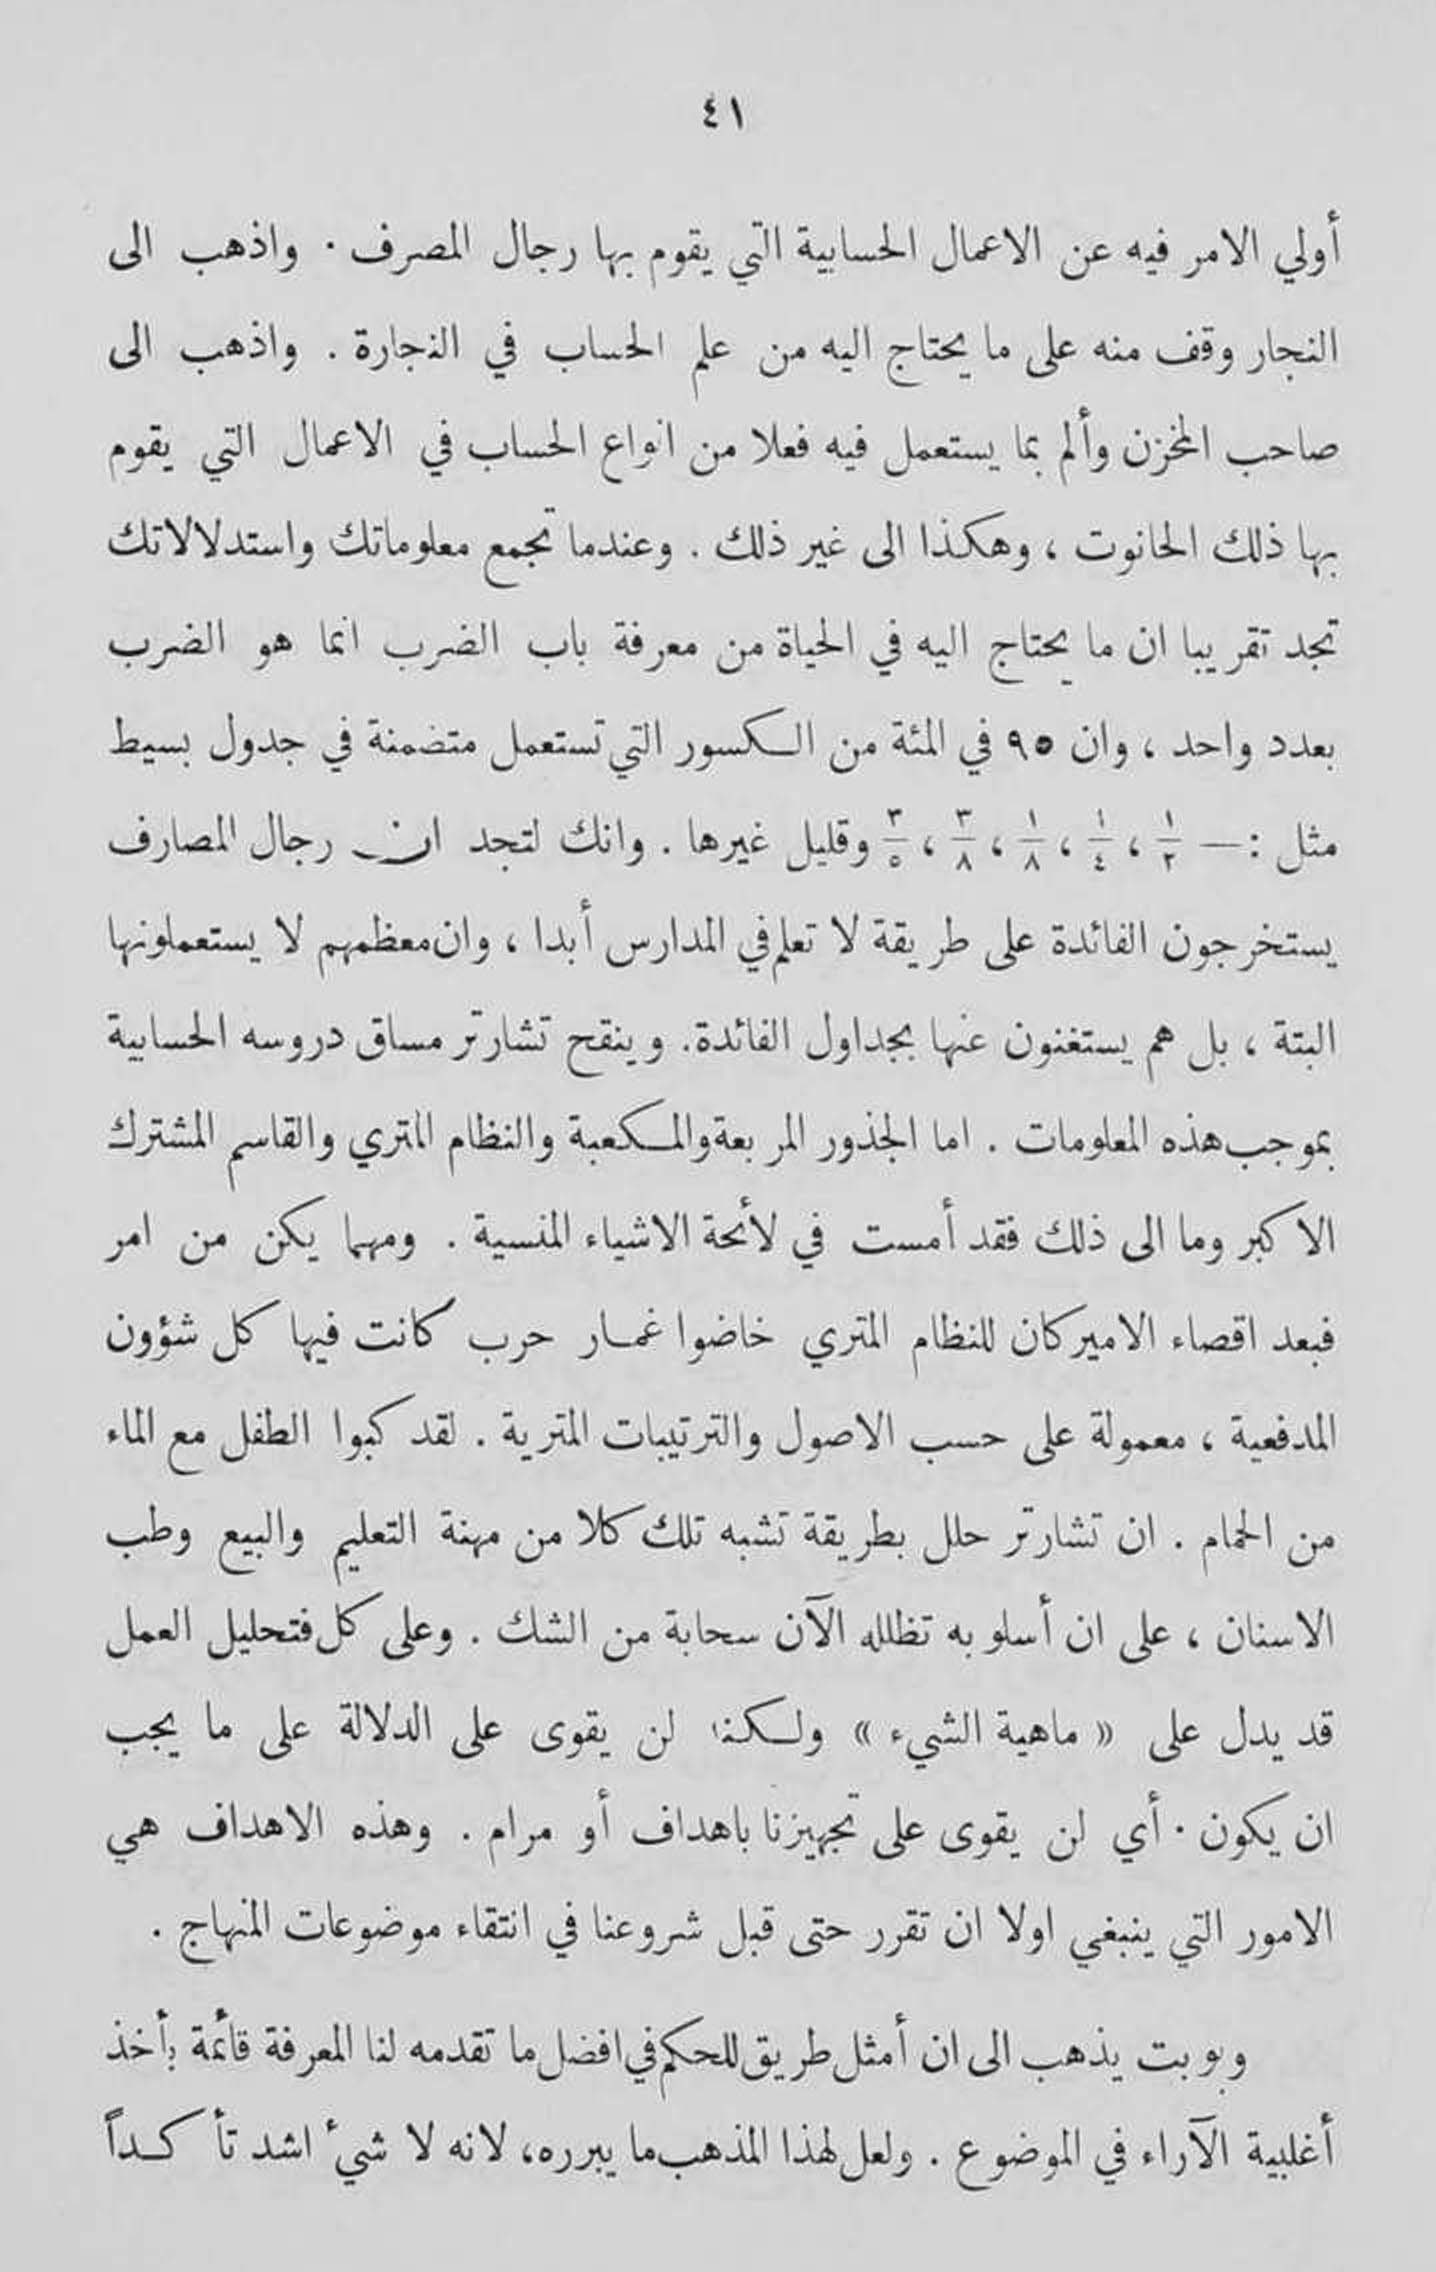 ٤١
أولي الامر فيه عن الاعمال الحسابية التي يقوم بها رجال المصرف . واذهب الى
النجار وقف منه على ما يحتاج اليه من علم الحساب في النجارة . واذهب الى
صاحب المخزن وألم بما يستعمل فيه فعلا من انواع الحساب في الاعمال التي يقوم
بها ذلك الحانوت ، وهكذا الى غير ذلك . وعندما تجمع معلوماتك واستدلالاتك
تجد تقريبا ان ما يحتاج اليه في الحياة من معرفة باب الضرب انما هو الضرب
بعدد واحد ، وان ٩٥ في المئة من الكسور التي تستعمل متضمنة في جدول بسيط
مثل : — ١/٢ ، ١/٤ ، ١/٨ ، ٣/٨ ، ٣/٥ وقليل غيرها . وانك لتجد ان رجال المصارف
يستخرجون الفائدة على طريقة لا تعلم في المدارس أبدا ، وان معظمهم لا يستعملونها
البتة ، بل هم يستغنون عنها بجداول الفائدة. وينقح تشارتر مساق دروسه الحسابية
بموجب هذه المعلومات . اما الجذور المربعة والمكعبة والنظام المتري والقاسم المشترك
الاكبر وما الى ذلك فقد أمست في لائحة الاشياء المنسية . ومهما يكن من امر
فبعد اقصاء الاميركان للنظام المتري خاضوا غمار حرب كانت فيها كل شؤون
المدفعية ، معمولة على حسب الاصول والترتيبات المترية . لقد كبوا الطفل مع الماء
من الحمام . ان تشارتر حلل بطريقة تشبه تلك كلا من مهنة التعليم والبيع وطب
الاسنان ، على ان أسلوبه تظلله الآن سحابة من الشك . وعلى كل فتحليل العمل
قد يدل على « ماهية الشيء » ولكنه لن يقوى على الدلالة على ما يجب
ان يكون . أي لن يقوى على تجهيزنا باهداف أو مرام . وهذه الاهداف هي
الامور التي ينبغي اولا ان تقرر حتى قبل شروعنا في انتقاء موضوعات المنهاج .
وبوبت يذهب الى ان أمثل طريق للحكم في افضل ما تقدمه لنا المعرفة قائمة بأخذ
أغلبية الآراء في الموضوع . ولعل لهذا المذهب ما يبرره، لانه لا شيء اشد تأكداً